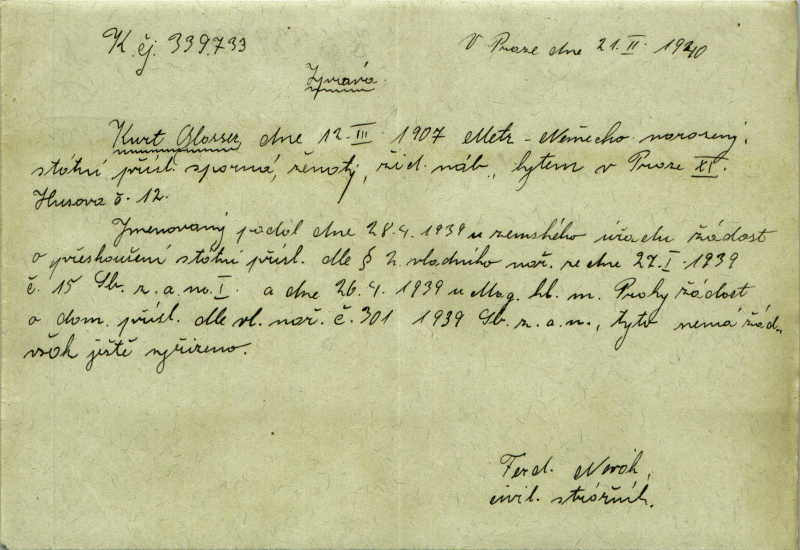 K čj. 339.733
V Praze dne 21. II. 1940
Zpráva.
Kurt Glasser, dne 12. III. 1907 Metz - Německo narozený,
státní přísl. sporná, ženatý, žid. náb., bytem v Praze XI.
Husova č. 12.
Jmenovaný podal dne 28.4. 1939 u zemského úřadu žádost
o přezkoušení státní přísl. dle § 2. vládního nař. ze dne 27. I. 1939
č. 15 Sb. z. a n. I. a dne 26.4. 1939 u Mag. hl. m. Prahy žádost
o dom. přísl. dle vl. nař. č. 301 1939 Sb. z. a n., tyto nemá
však ještě vyřízeno.
Ferd. Novák,
civil. strážník.